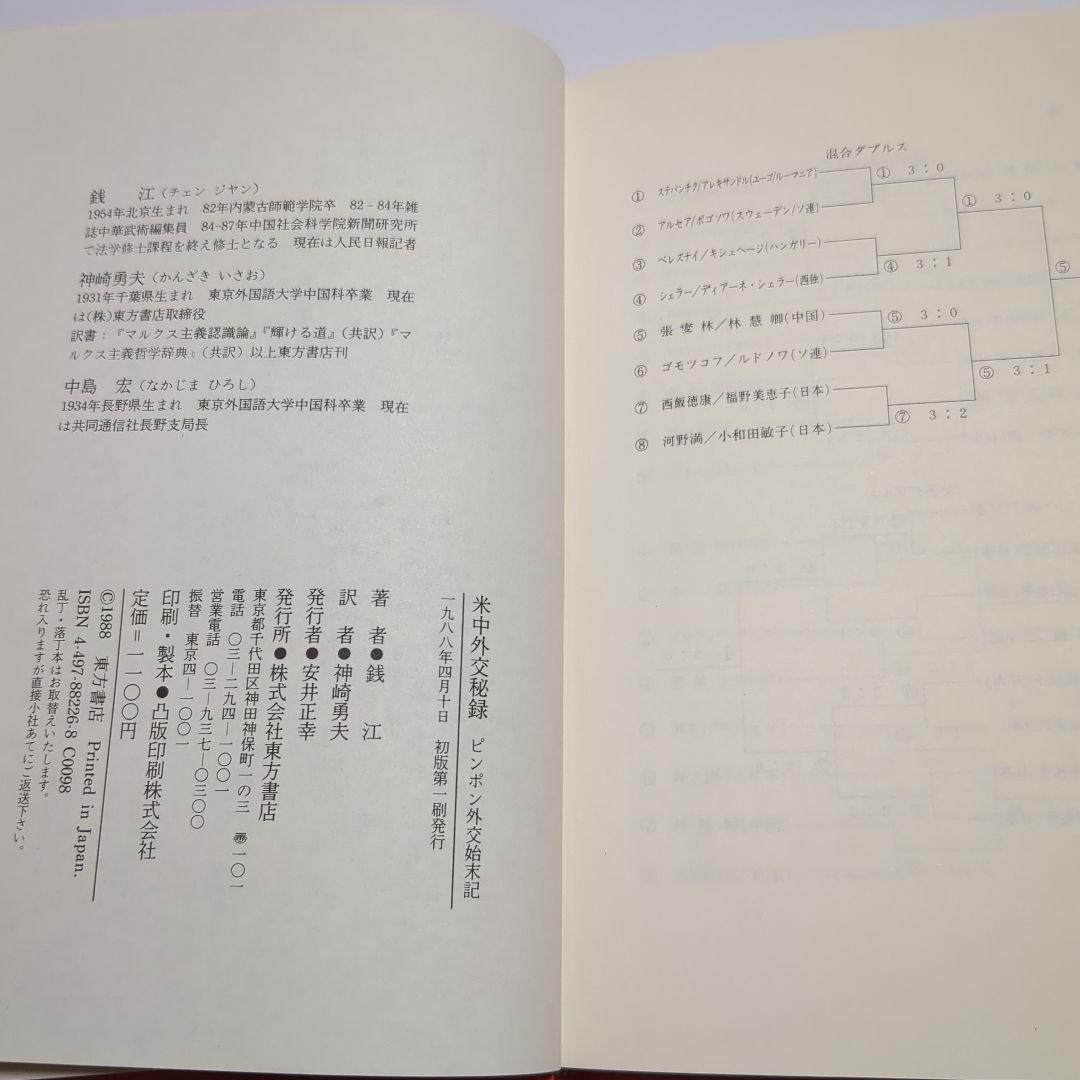 銭　江（チェン ジヤン）
1954年北京生まれ　82年内蒙古師範学院卒　82－84年雑
誌中華武術編集員　84-87年中国社会科学院新聞研究所
で法学修士課程を終え修士となる　現在は人民日報記者
神崎勇夫（かんざき いさお）
1931年千葉県生まれ　東京外国語大学中国科卒業　現在
は（株）東方書店取締役
訳書：『マルクス主義認識論』『輝ける道』（共訳）『マ
ルクス主義哲学辞典』（共訳）以上東方書店刊
中島　宏（なかじま ひろし）
1934年長野県生まれ　東京外国語大学中国科卒業　現在
は共同通信社長野支局長
米中外交秘録　ピンポン外交始末記
一九八八年四月十日　初版第一刷発行
著　者●銭　江
訳　者●神崎勇夫
発行者●安井正幸
発行所●株式会社東方書店
東京都千代田区神田神保町一の三　〒一〇一
電話　〇三―二九四―一〇〇一
営業電話　〇三―九三七―〇三〇〇
振替　東京四―一〇〇一
印刷・製本●凸版印刷株式会社
定価＝一一〇〇円
©1988　東方書店　Printed in Japan.
ISBN 4-497-88226-8 C0098
乱丁・落丁本はお取替えいたします。
恐れ入りますが直接小社あてにご返送下さい。
混合ダブルス
① ステパンチク/アレキサンドル(ユーゴ/ルーマニア)
② アルセア/ボゴソワ(スウェーデン/ソ連)
③ ベレズナイ/キシュヘージ(ハンガリー)
④ シェラー/ディアーネ・シェラー(西独)
⑤ 張燮林／林慧卿(中国)
⑥ ゴモツコフ／ルドノワ(ソ連)
⑦ 西飯徳康／福野美恵子(日本)
⑧ 河野満／小和田敏子(日本)
① 3：0
④ 3：1
⑤ 3：0
⑦ 3：2
① 3：0
⑤ 3：1
⑤